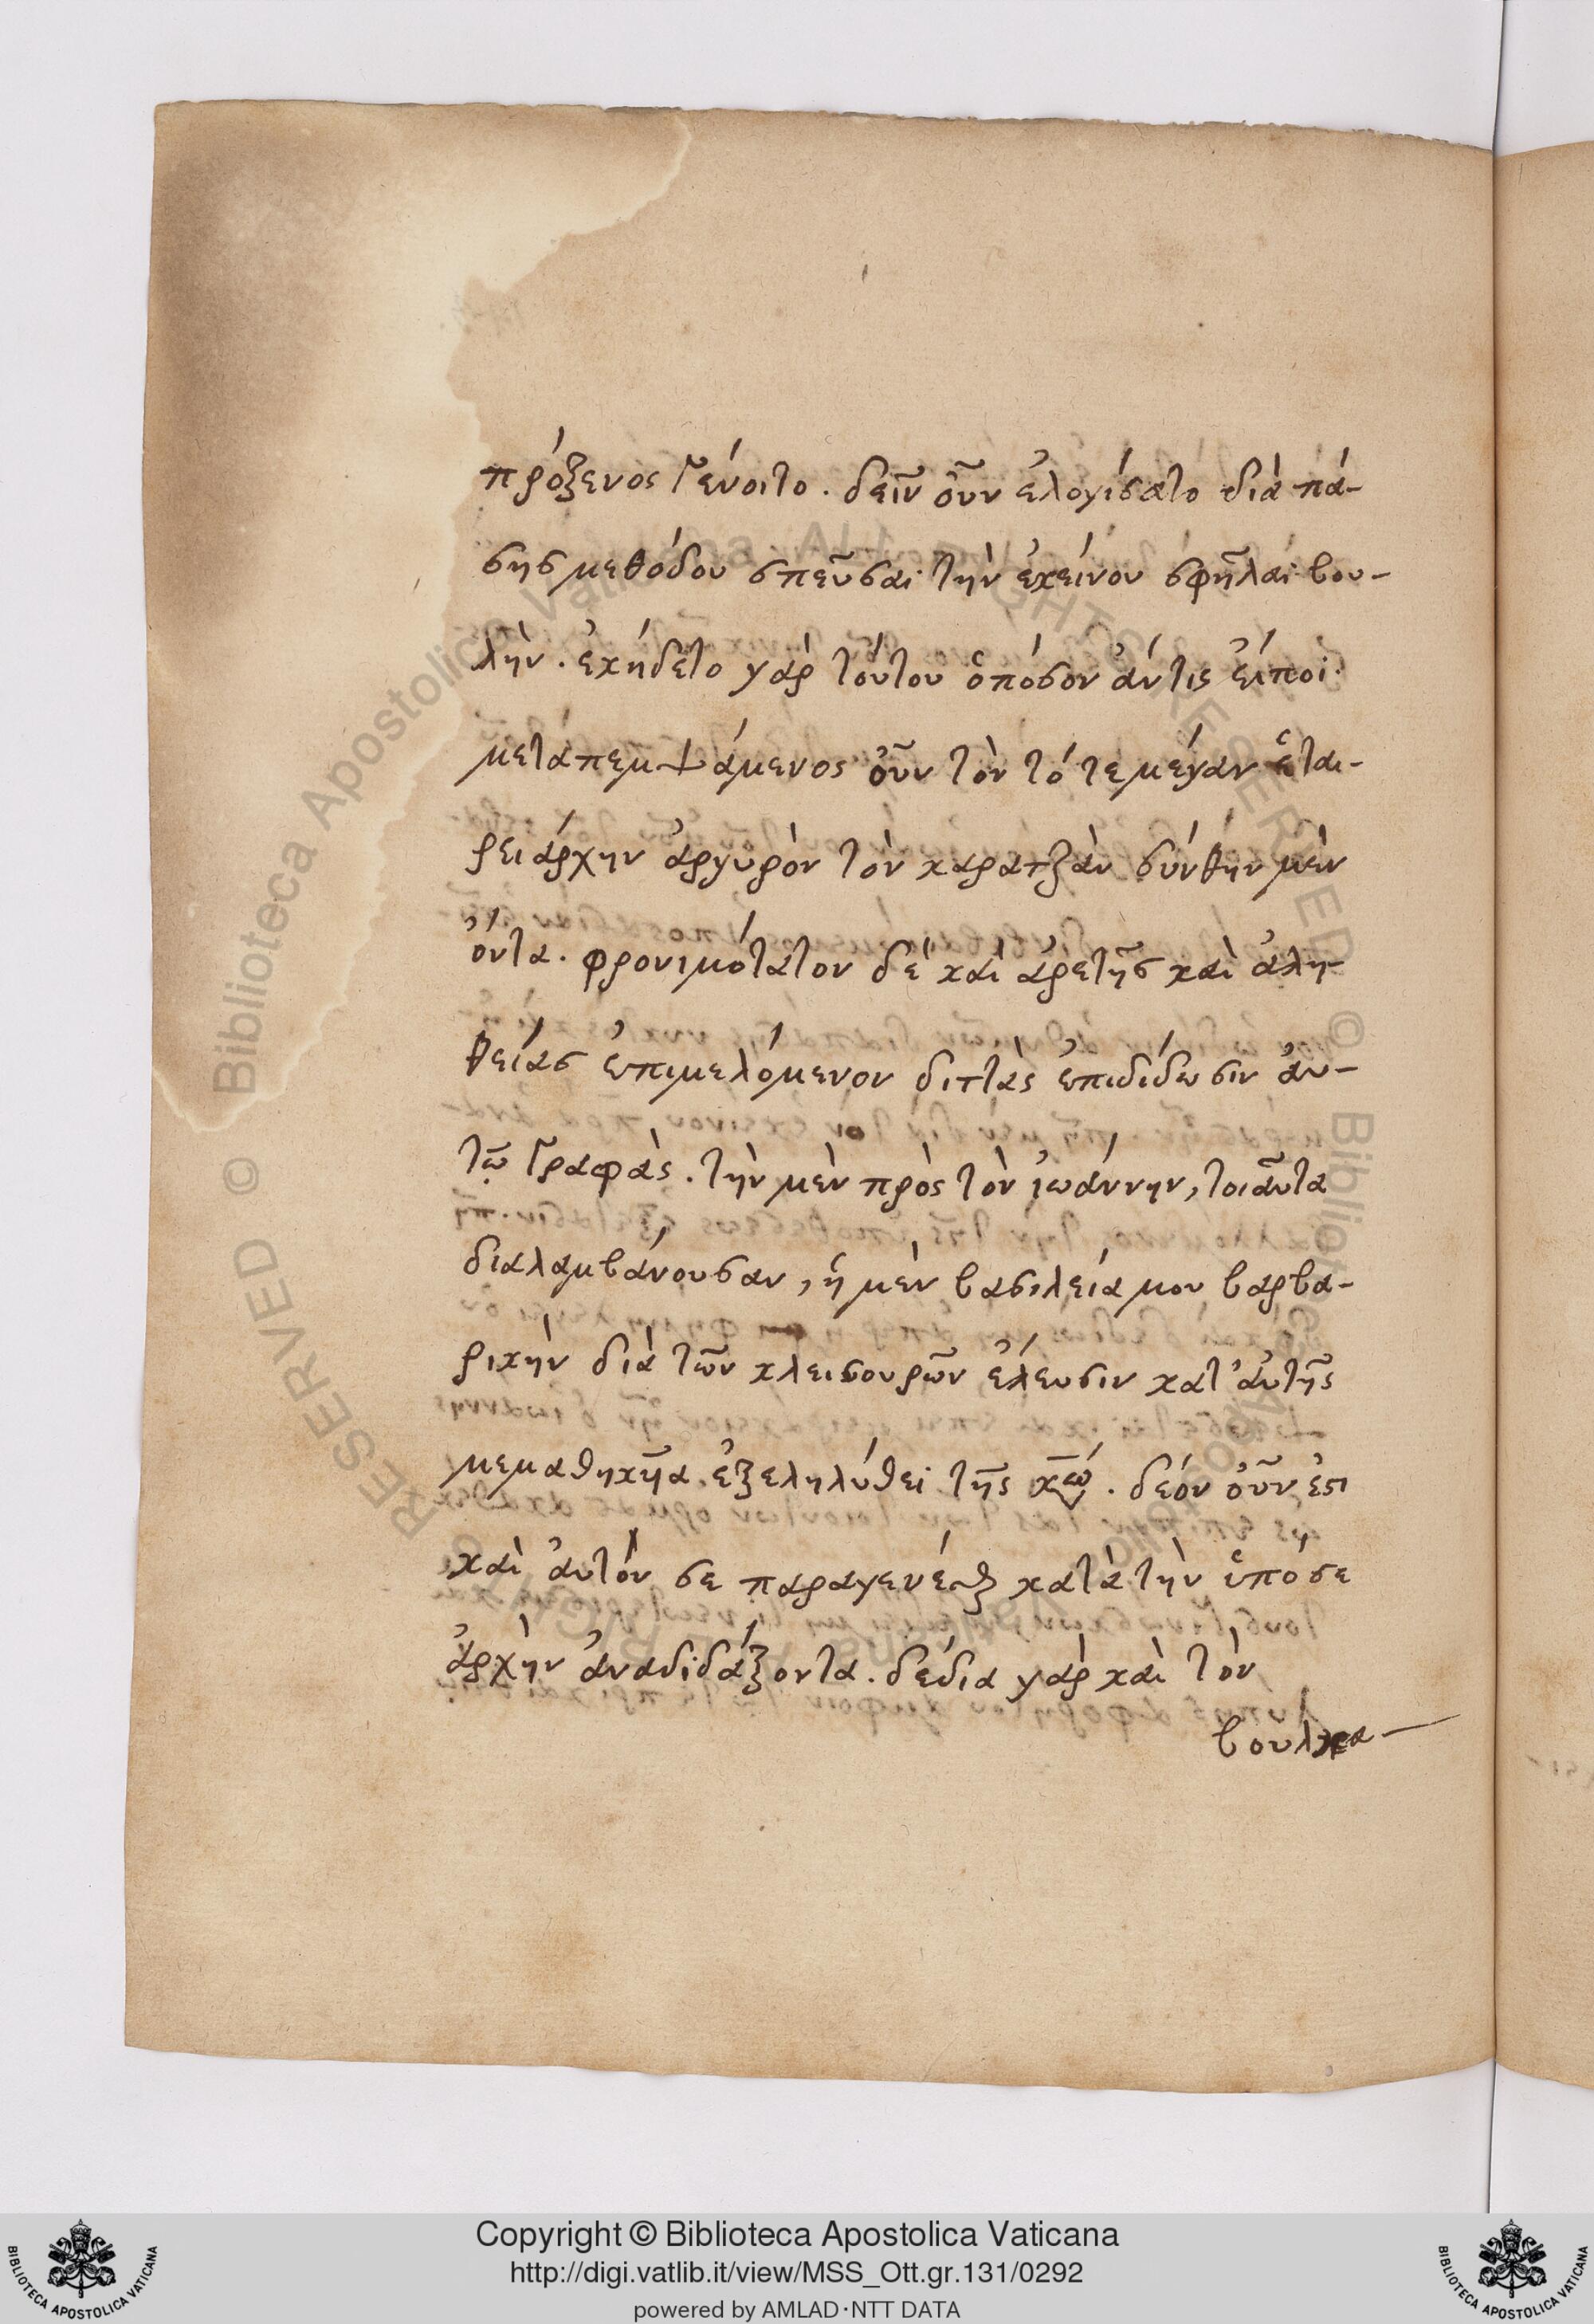 πρόξενος γένοιτο. δεῖν οὖν ἐλογίσατο διὰ πά-
σης μεθόδου σπεῦσαι τὴν ἐκείνου σφῆλαι βου-
λήν. ἐκήδετο γὰρ τούτου ὁπόσον ἄν τις εἴποι.
μεταπεμψάμενος οὖν τὸν τότε μέγαν ἑται-
ρειάρχην ἀργυρὸν τὸν καρατζὰν σύνθην μὲν
ὄντα. φρονιμότατον δὲ καὶ ἀρετῆς καὶ ἀλη-
θείας ἐπιμελόμενον διττὰς ἐπιδίδωσιν αὐ-
τῷ γραφὰς. τὴν μὲν πρὸς τὸν ἰωάννην, τοιαῦτα
διαλαμβάνουσαν, ἡ μὲν βασιλεία μου βαρβα-
ρικὴν διὰ τῶν κλεισουρῶν ἔλευσιν κατ' αὐτῆς
μεμαθηκῆα ἐξεληλύθει τῆς
δέον οὖν ἐστι
καὶ αὐτόν σε παραγενέσθαι κατὰ τὴν ὑπό σε
ἀρχὴν ἀναδιδάξοντα. δέδια γὰρ καὶ τὸν
βουλκα-
Copyright © Biblioteca Apostolica Vaticana
http://digi.vatlib.it/view/MSS_Ott.gr.131/0292
powered by AMLAD·NTT DATA
BIBLIOTECA APOSTOLICA VATICANA
BIBLIOTECA APOSTOLICA VATICANA